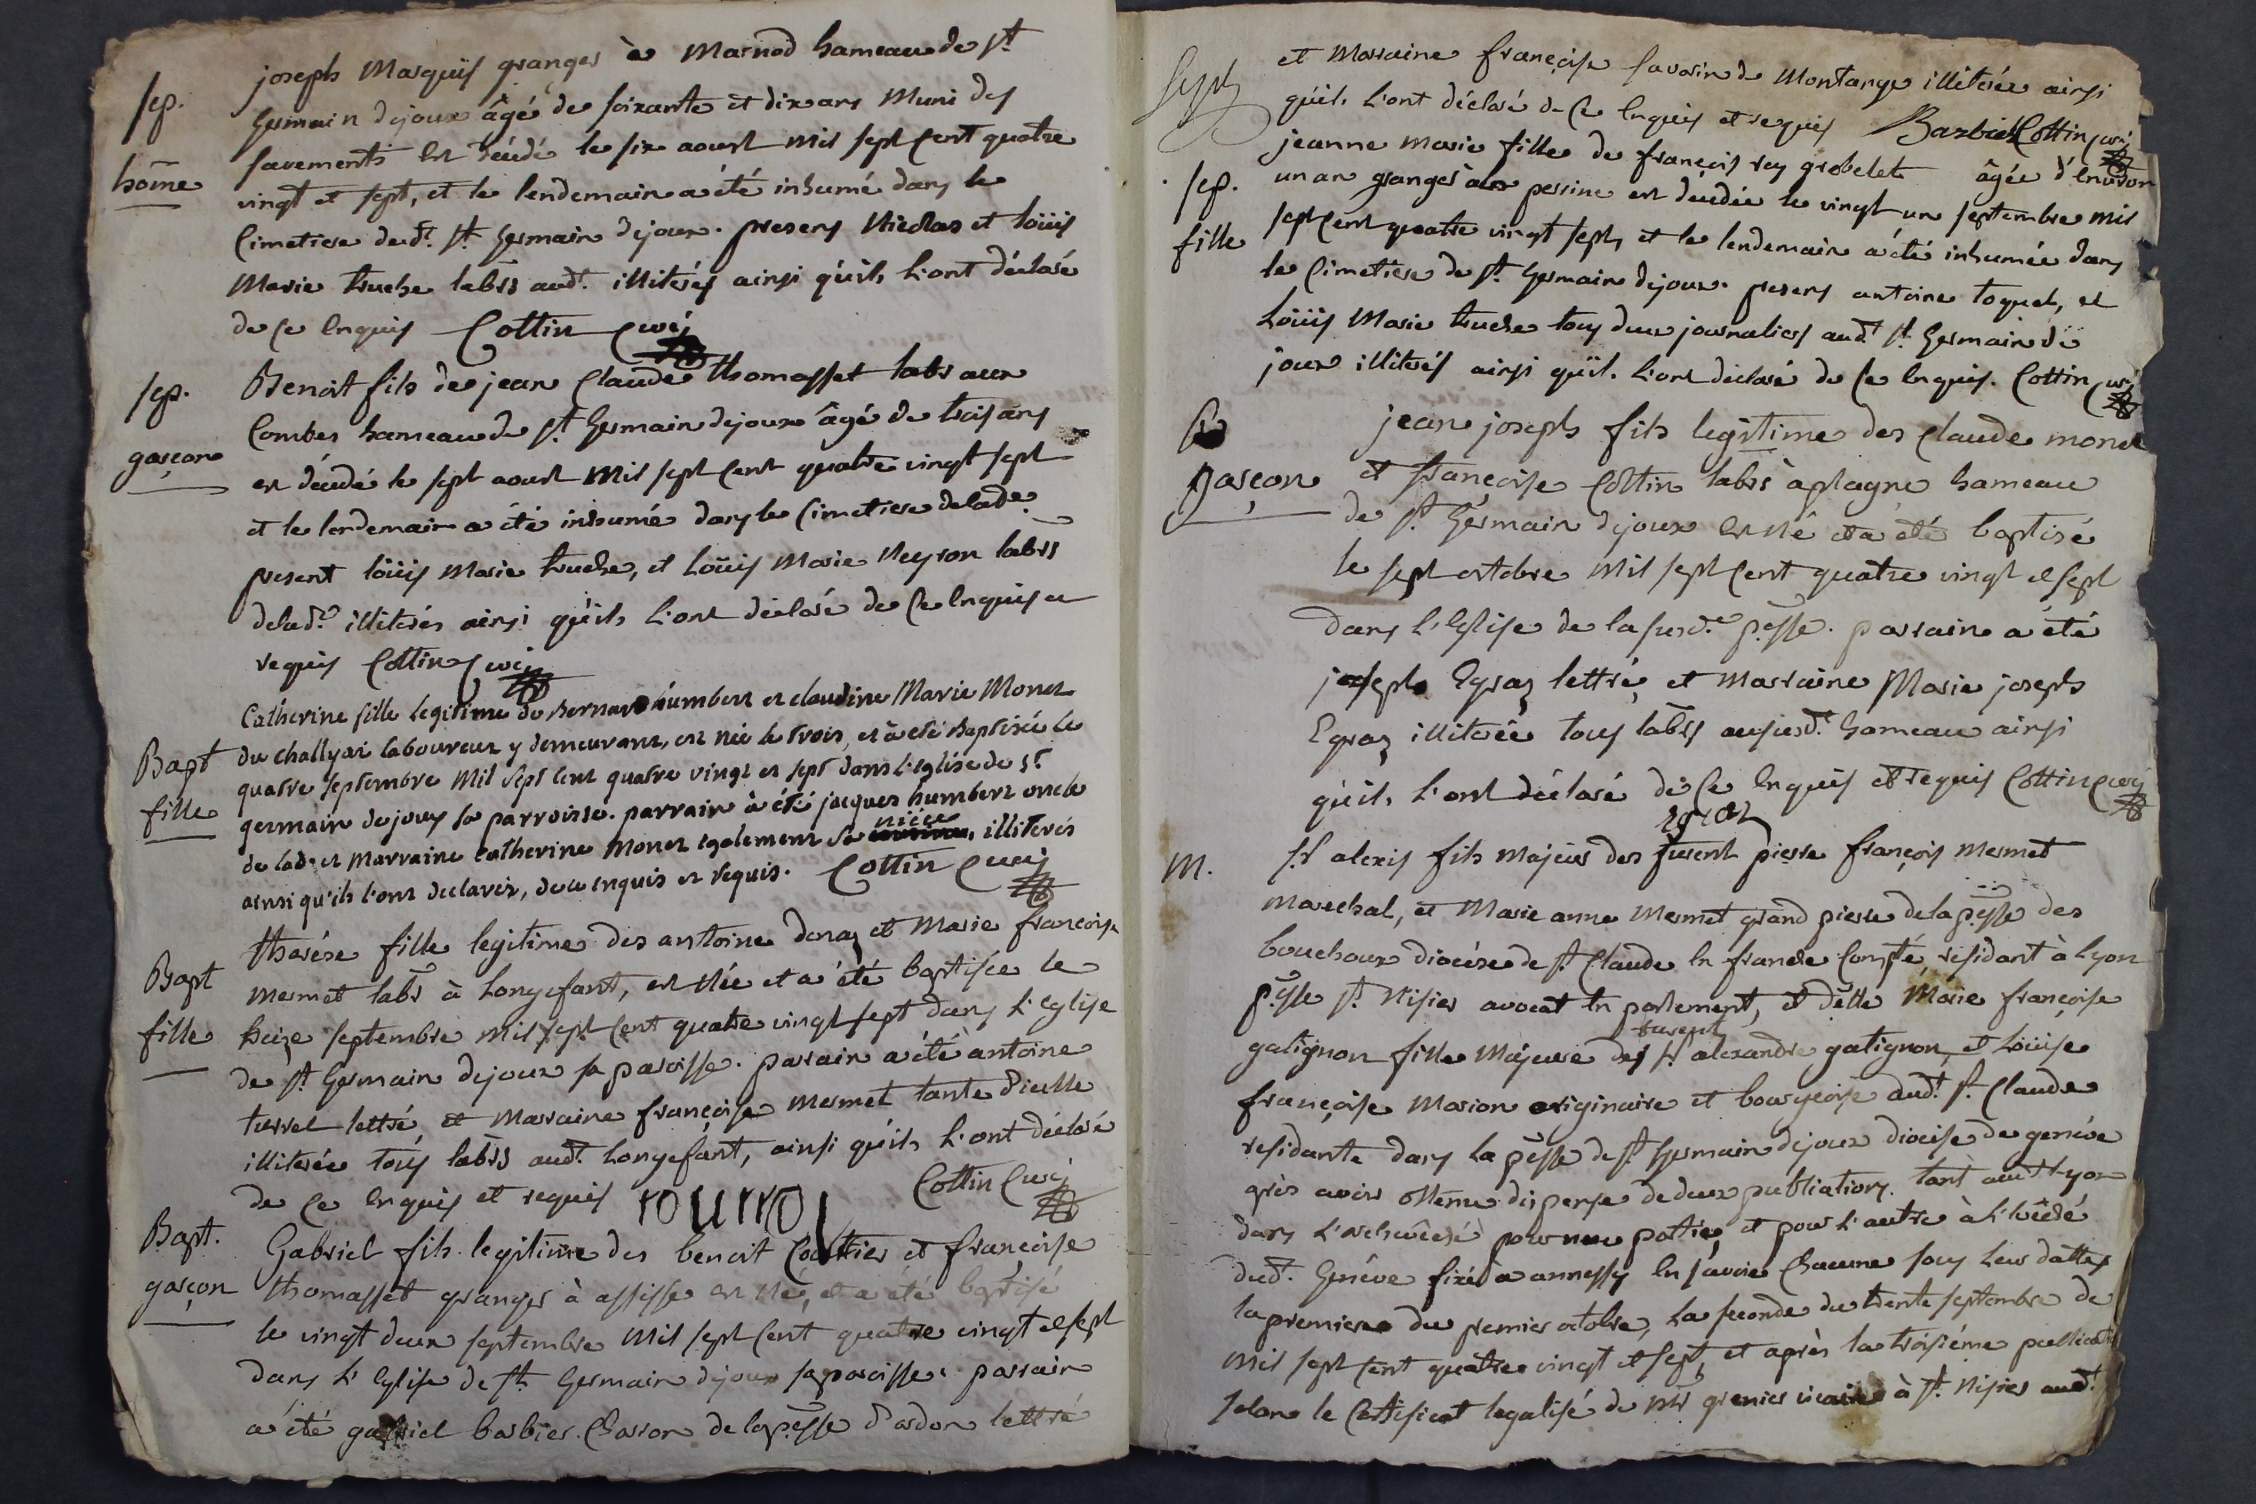 sep.
hōme
joseph Marquis granger à Marnod hameau de st
Germain dejoux âgé de soixante et dix ans Muni des
sacrements est décédé le six aoust mil sept cent quatre
vingt et sept, et le lendemain a été inhumé dans le
Cimetiere dudt. st Germain dejoux. presens Nicolas et loüis
Marie truche labrs audt. illiterés ainsi qu'ils l'ont déclaré
de ce enquis Cottin Curé
sep.
garçon
Benoit fils de jean Claude thomasset labr aux
Combes hameau de st Germain dejoux âgé de trois ans
est décédé le sept aoust mil sept cent quatre vingt sept
et le lendemain a été inhumé dans le Cimetiere deladte.
present loüis Marie truche, et Loüis Marie Neyron labrs
deladte. illiterés ainsi qu'ils l'ont déclaré de ce enquis et
requis Cottin Curé
Bapt
fille
Catherine fille legitime de Bernard humbert et claudine Marie Monet
du challyar laboureur y demeurant, est née le trois, et à eté Baptisée le
quatre septembre Mil sept cent quatre vingt et sept dans l'eglise de st
germain dejoux sa parroisse. parrain à été jacques humbert oncle
de lade. et Marraine catherine Monet egalement sa niéce illiterés
ainsi qu'ils l'ont declarér, de ce enquis et requis. Cottin Curé
Bapt
fille
tharése fille legitime des antoine donaz et Marie françoise
mermet labr à Longefant, est Née et a été baptisée le
treize septembre mil sept cent quatre vingt sept dans l'Eglise
de st. Germain dejoux sa paroisse. parrain a été antoine
turrel lettré et Marraine françoise mermet tante d'icelle
illiterée tous labrs audt. Longefant, ainsi qu'ils l'ont déclaré
de ce enquis et requis Cottin Curé
Bapt.
garçon
Gabriel fils legitime des benoit Coutier et françoise
thomasset granger à assisse est Né, et a été baptisé
le vingt deux septembre Mil sept cent quatre vingt et sept
dans l'Eglise de st. Germain dejoux sa paroisse. parrain
a été gabriel barbier Charron de la pesse d'ardon lettré
et Marraine françoise savarin de Montange illiterée ainsi
qu'ils l'ont déclaré de ce enquis et requis Barbier Cottin Curé
sep.
fille
jeanne marie fille de françois rey grobelet âgée d'environ
un an granger à la perrine est décédée le vingt un septembre mil
sept cent quatre vingt sept, et le lendemain a été inhumée dans
le Cimetiere de st. Germain dejoux. presens antoine toquet, et
Loüis Marie truche tous deux journaliers audt st. Germain de
joux illiterés ainsi qu'il. l'ont déclaré de ce enquis. Cottin Curé
garçon
jean joseph fils legitime des Claude monet
et françoise Cottin labrs à plagne hameau
de st. Germain dejoux est Né et a été baptisé
le sept octobre Mil sept cent quatre vingt et sept
dans l'Eglise de la susde. pesse. parrain a été
joseph Egraz lettré, et marraine Marie joseph
Egraz illiterée tous labrs aususdt. hameau ainsi
qu'ils l'ont déclaré de ce enquis et requis Cottin Curé
egraz
M.
sr alexis fils majeur des furent pierre françois mermet
marechal, et Marie anne mermet grand pierre de la pesse des
bouchoux diocése de st. Claude en franche Compté, residant à Lyon
pesse st. Nisier avocat en parlement, et delle Marie françoise
furent
gatignon fille Majeure des sr alexandre gatignon, et Loüise
françoise Marion originaire et bourgeoise audt. st. Claude
residante dans la pesse de st. Germain dejoux diocése de genéve
près avoir obtenu dispense de deux publications. tant audt Lyon
dans l'archevêché pour une partie, et pour l'autre à l'évêché
dudt. Genéve fixé à annessy en savoie Chacune sous leur dattes
la premiere du premier octobre, La seconde du trente septembre de
Mil sept cent quatre vingt et sept, et après la troisiéme publication
selon le Certificat legalisé de Mr grenier vicaire à st. Nisier audt.